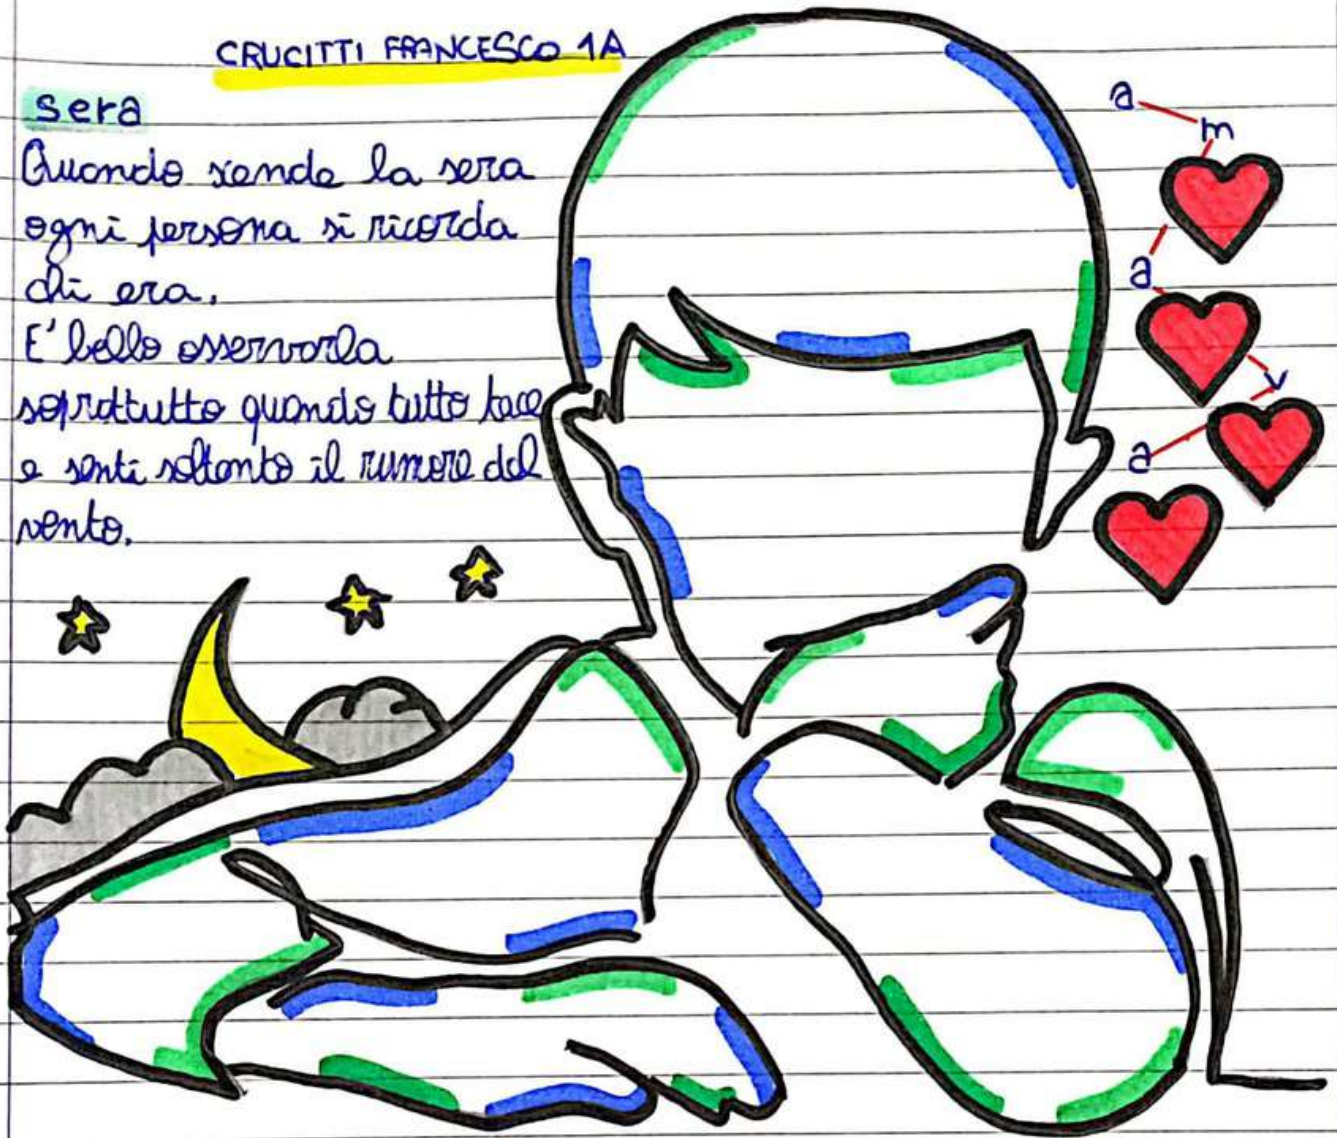 CRUCITTI FRANCESCO 1A
sera
Quando scende la sera
ogni persona si ricorda
chi era.
E' bello osservarla
soprattutto quando tutto tace
e senti soltanto il rumore del
vento.
a
m
a
v
a